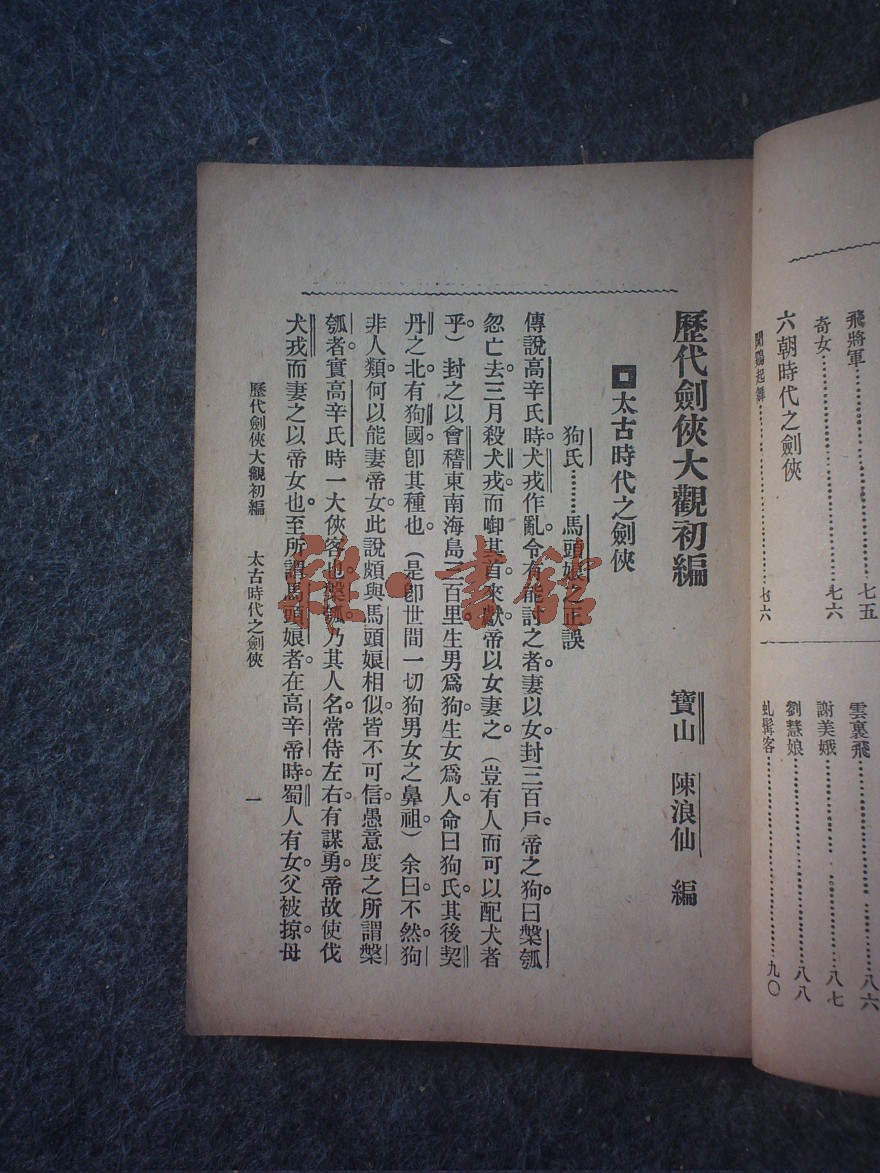 飛將軍……七五
奇女……七六
六朝時代之劍俠
聞鷄起舞……七六
雲裏飛……八六
謝美娥……八七
劉慧娘……八八
虬髯客……九〇
歷代劍俠大觀初編　寶山　陳浪仙　編
太古時代之劍俠
狗氏……馬頭娘之正誤
傳說高辛氏時。犬戎作亂。令有能討之者。妻以女。封三百戶。帝之狗曰槃瓠
忽亡去。三月殺犬戎而啣其首來獻。帝以女妻之。（豈有人而可以配犬者
乎）封之以會稽東南海島三百里。生男爲狗。生女爲人。命曰狗氏。其後契
丹之北有狗國。卽其種也。（是卽世間一切狗男女之鼻祖。）余曰不然。狗
非人類。何以能妻帝女。此說頗與馬頭娘相似。皆不可信。愚意度之。所謂槃
瓠者。實高辛氏時一大俠客也。槃瓠乃其人名。常侍左右。有謀勇。帝故使伐
犬戎而妻之以帝女也。至所謂馬頭娘者。在高辛帝時。蜀人有女。父被掠。母
歷代劍俠大觀初編　太古時代之劍俠　一
雜·書館